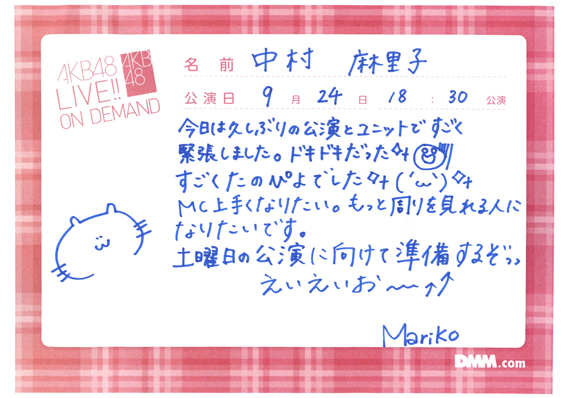 AKB48
LIVE!!
ON DEMAND
AKB
48
名前 中村 麻里子
公演日 9月24日 18:30公演
今日は久しぶりの公演とユニットですごく
緊張しました。ドキドキだった
すごくたのぴよでした('ω')
MC上手くなりたい。もっと周りを見れる人に
なりたいです。
土曜日の公演に向けて準備するぞっっ
えいえいお〜〜↑↑
Mariko
DMM.com